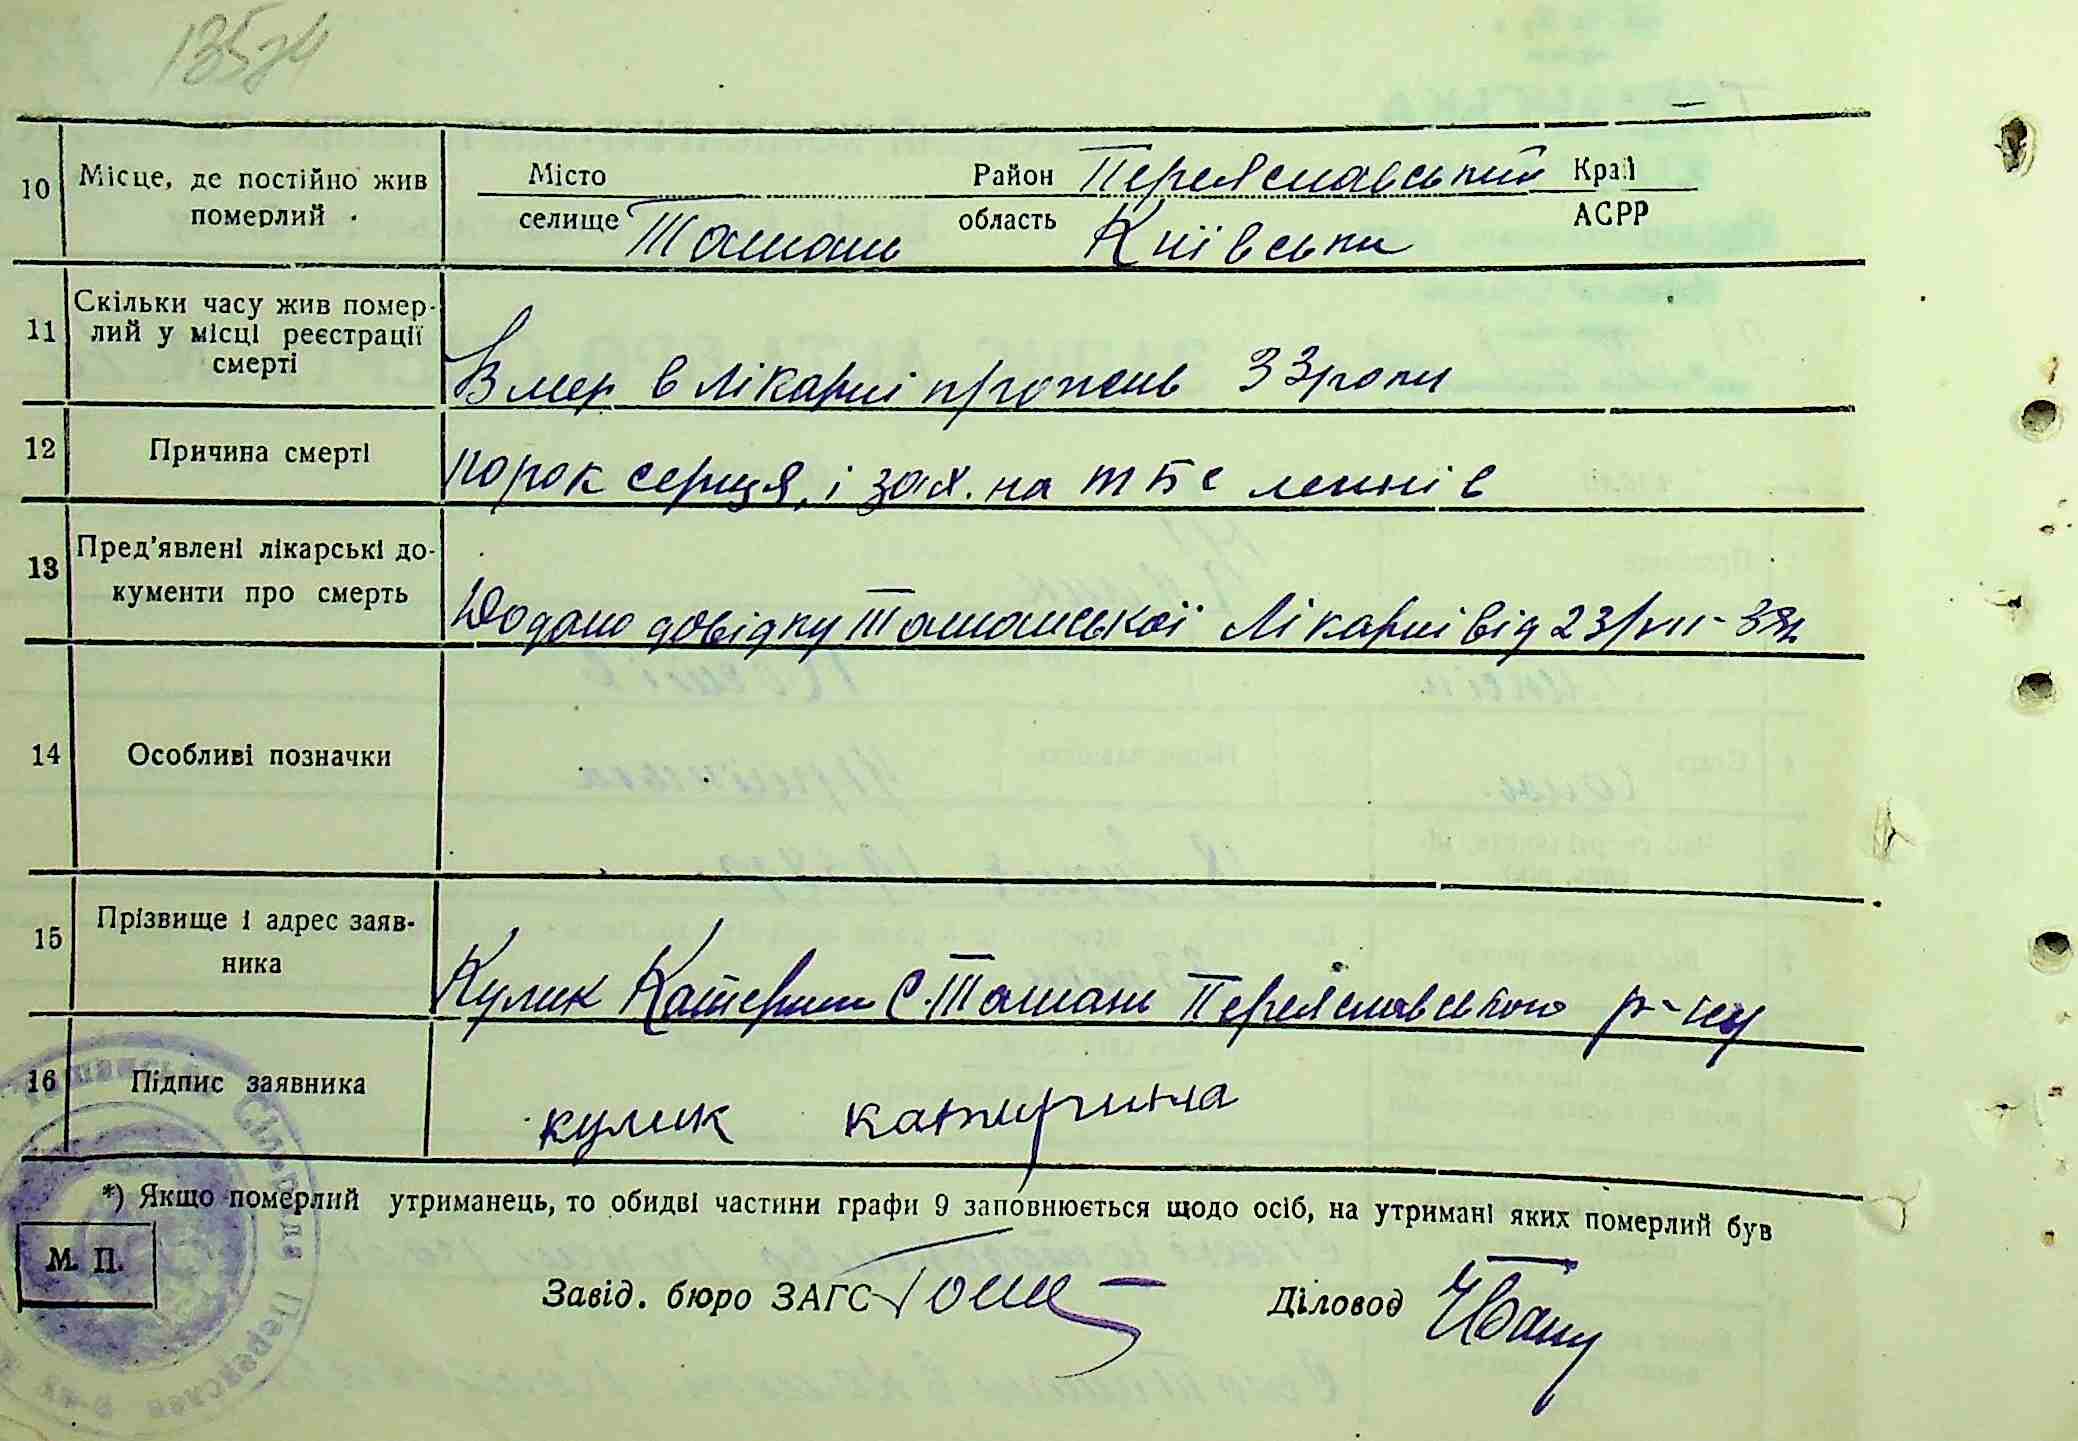 13574
10 Місце, де постійно жив померлий
Місто Район Переяславський Край
селище Ташань область Київська АСРР
11 Скільки часу жив помер-
лий у місці реєстрації
смерті
Вмер в лікарні прожив 33 роки
12 Причина смерті
порок серця, і зах. на тбс легенів
13 Пред'явлені лікарські до-
кументи про смерть
Додано довідку Ташанської Лікарні від 23/VII-38р
14 Особливі позначки
15 Прізвище і адрес заяв-
ника
Кулик Катерина с. Ташань Переяславського р-ну
16 Підпис заявника
кулик катирина
*) Якщо померлий утриманець, то обидві частини графи 9 заповнюється щодо осіб, на утримані яких померлий був
М. П.
Завід. бюро ЗАГС
Діловод